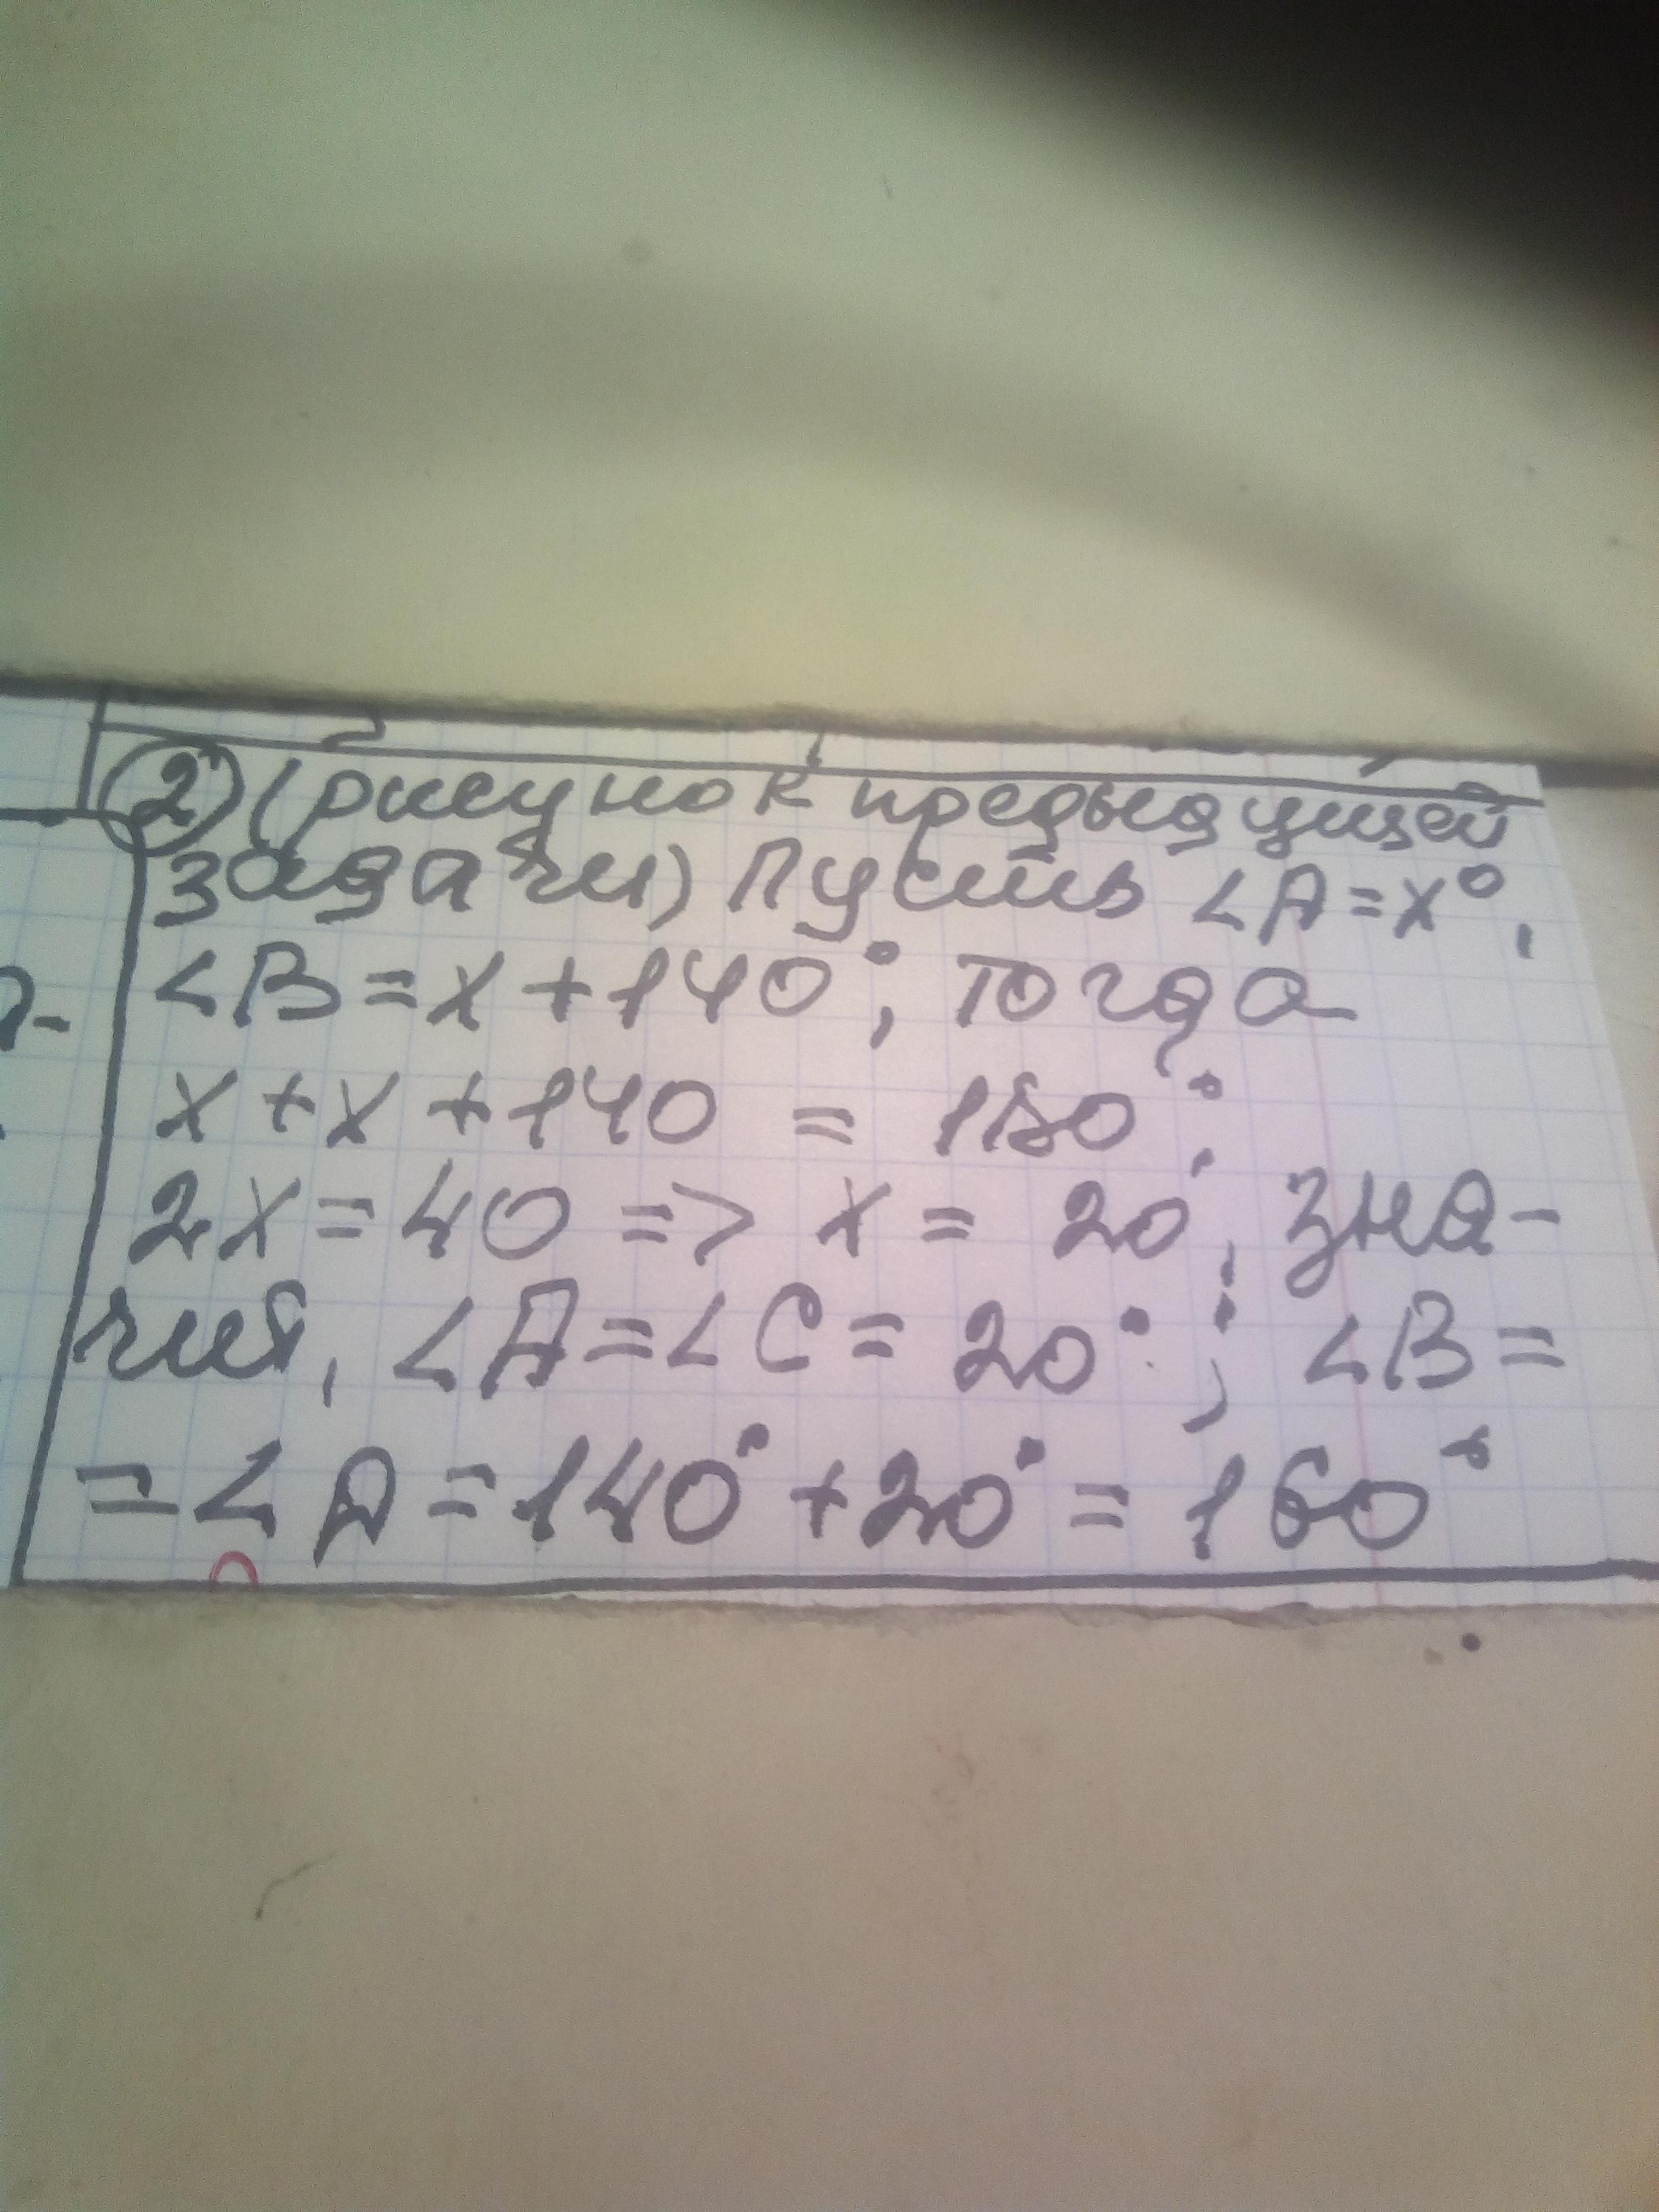 ② (рисунок предыдущей
задачи) Пусть ∠A = x°,
∠B = x + 140°; тогда
x + x + 140 = 180°;
2x = 40 => x = 20, зна-
чит, ∠A = ∠C = 20°; ∠B =
= ∠D = 140° + 20° = 160°